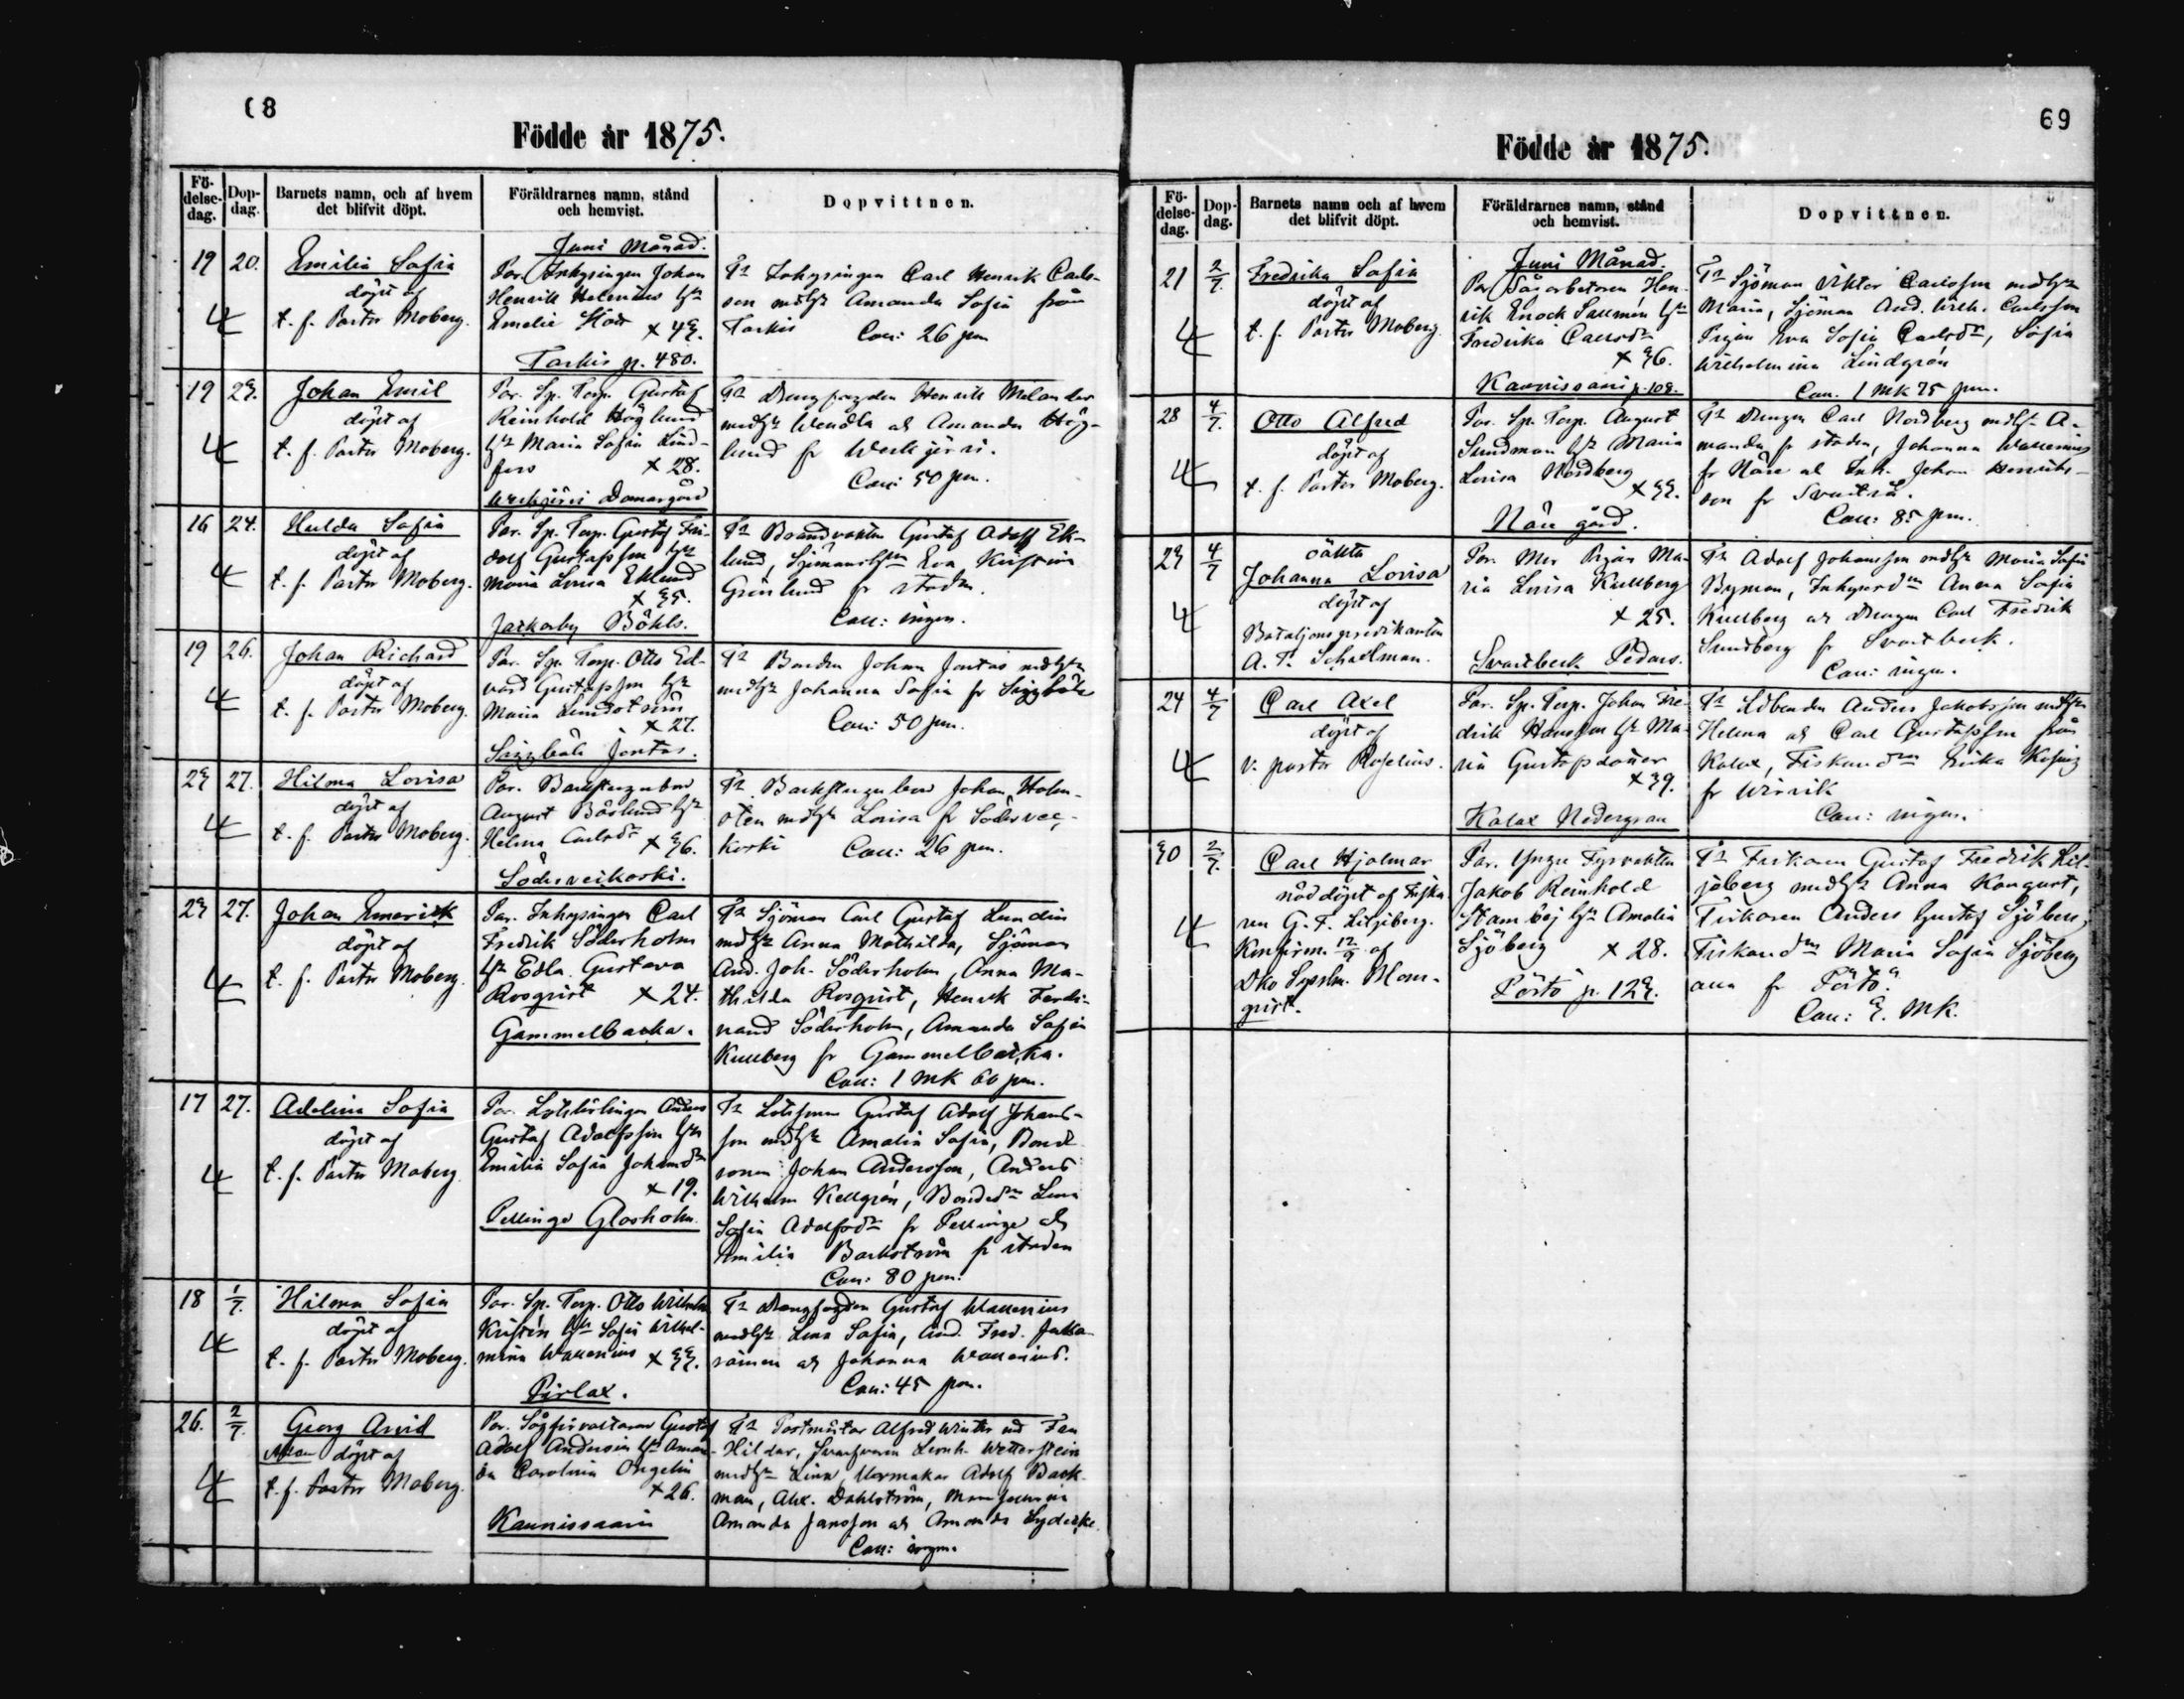 68
Födde år 1875.
Fö-
delse-
dag.
Dop-
dag.
Barnets namn, och af hvem
det blifvit döpt.
Föräldrarnes namn, stånd
och hemvist.
Dopvittnen.
Juni Månad.
19
20.
Emilia Sofia
döpt af
t. f. Pastor Moberg.
Par. Inhysingen Johan
Henrik Helenius hstr
Emelie
x 43.
Tarkis p. 480.
Ts Inhysingen Carl Henrik Carls-
son mdhstr Amanda Sofia från
Tarkis
Coll: 26 pm
19
23.
Johan Emil
döpt af
t. f. Pastor Moberg.
Par. Sp. Torp. Gustaf
Reinhold Höglund
hstr Maria Sofia Lind-
fors x 28.
Werkjärvi Domargård
Ts Drengfogden Henrik Melander
mdhstr Wendla och Amanda Hög-
lund fr Werkjärvi.
Coll: 50 pm.
16
24.
Hulda Sofia
döpt af
t. f. Pastor Moberg.
Par. Sp. Torp. Gustaf Fri-
dolf Gustafsson hstr
Maria Lovisa Eklund
x 35.
Jackarby Böhls.
Ts Brandvakten Gustaf Adolf Ek-
lund, Sjömanshn Eva Kristina
Grönlund fr staden.
Coll: ingen.
19
26.
Johan Richard
döpt af
t. f. Pastor Moberg.
Par. Sp. Torp. Otto Ed-
vard Gustafsson hstr
Maria Lindström
x 27.
Siggböle Jontas.
Ts Bonden Johan Jontas mdhstr
mdhstr Johanna Sofia fr Siggböle
Coll: 50 pm.
23
27.
Hilma Lovisa
döpt af
t. f. Pastor Moberg.
Par. Backstugubon
August Båslund hstr
Helena Carlsdr x 36.
Söderveikoski.
Ts Backstugubon Johan Holm-
sten mdhstr Lovisa fr Södervei-
koski Coll: 26 pm.
23
27.
Johan Emerick
döpt af
t. f. Pastor Moberg.
Par. Inhysingen Carl
Fredrik Söderholm
hstr Edla Gustava
Rosqvist x 24.
Gammelbacka.
Ts Sjöman Carl Gustaf Lundin
mdhstr Anna Mathilda, Sjöman
And. Joh. Söderholm, Anna Ma-
thilda Rosqvist, Henrik Ferdi-
nand Söderholm, Amanda Sofia
Kullberg fr Gammelbacka.
Coll: 1 mk 60 pm.
17
27.
Adelina Sofia
döpt af
t. f. Pastor Moberg.
Par. Lotslärlingen Anders
Gustaf Adolfsson hstr
Emilia Sofia Johansdr
x 19.
Pellinge Glosholm.
Ts Lotsman Gustaf Adolf Johans-
son mdhstr Amalia Sofia, Bond-
sonen Johan Andersson, Anders
Wilhelm Kellgrén, Bondedn Lena
Sofia Adolfsdr fr Pellinge och
Emilia Backström fr staden
Coll: 80 pm.
18
1/7.
Hilma Sofia
döpt af
t. f. Pastor Moberg.
Par. Sp. Torp. Otto Wilhelm
Kristén hstr Sofia Wilhel-
mina Wallenius x 33.
Pirlax.
Ts Drengfogden Gustaf Wallenius
mdhstr Lena Sofia, And. Fred.
och Johanna Wallenius.
Coll: 45 pm.
26.
2/7.
Georg Arvid
döpt af
t. f. Pastor Moberg.
Par. Sågförvaltaren Gustaf
Adolf Andersin hstr Aman-
da Carolina Ongelin
x 26.
Kaunissaari
Ts Postmästar Alfred Winter md Fru
Hilda, Leonh. Wetterstein
mdhstr Lina, Urmakar Adolf Back-
man, Alex. Dahlström, Mamsellerna
Amanda Jansson och Amanda Lydecke.
Coll: ingen.
69
Födde år 1875.
Fö-
delse-
dag.
Dop-
dag.
Barnets namn och af hvem
det blifvit döpt.
Föräldrarnes namn, stånd
och hemvist.
Dopvittnen.
Juni Månad.
21
2/7.
Fredrika Sofia
döpt af
t. f. Pastor Moberg.
Par Sågarbetaren Hen-
rik Enock Sallmén hstr
Fredrika Carlsdr
x 36.
Kaunissaari p. 103.
Ts Sjöman Viktor Carlsson mdhstr
Maria, Sjöman And. Wilh. Carlsson
Pigan Eva Sofia Carlsdr, Sofia
Wilhelmina Lindgrén
Coll. 1 mk 75 pm.
28
4/7.
Otto Alfred
döpt af
t. f. Pastor Moberg.
Par. Sp. Torp. August
Sundman hstr Maria
Lovisa Nordberg
x 33.
Näse gård.
Ts Drengen Carl Nordberg mdhstr A-
manda fr staden, Johanna Wallenius
fr Näse och Inh. Johan Henriks-
son fr Svartså.
Coll: 85 pm.
23
4/7
oäkta
Johanna Lovisa
döpt af
Bataljonspredikanten
A. T. Schalman.
Par. Mor Pigan Ma-
ria Lovisa Kullberg
x 25.
Svartbeck Pedars.
Ts Adolf Johansson mdhstr Maria Sofia
Byman, Inhysesdn Anna Sofia
Kullberg och Drengen Carl Fredrik
Sundberg fr Svartbeck.
Coll: ingen.
24
4/7
Carl Axel
döpt af
v. pastor Roselius.
Par. Sp. Torp. Johan Fre-
drik Hansson hstr Ma-
ria Gustafsdotter
x 39.
Kalax Nedergran
Ts Ldbonden Anders Jakobsson mdhstr
Helena och Carl Gustafsson från
Kalax, Fiskaredn Erika
fr Wirvik
Coll: ingen.
30
2/7.
Carl Hjalmar
nöddöpt af Fiska
ren G. F. Liljeberg.
Konfirm. 12/9 af
Dko Syssln. Blom-
qvist.
Par. Yngre Fyrvakten
Jakob Reinhold
Stambej hstr Amalia
Sjöberg x 28.
Pörtö p. 123.
Ts Fiskaren Gustaf Fredrik Lil-
jeberg mdhstr Anna
Fiskaren Anders Gustaf Sjöberg,
Fiskaredn Maria Sofia Sjöberg
alla fr Pörtö.
Coll: 3. mk.